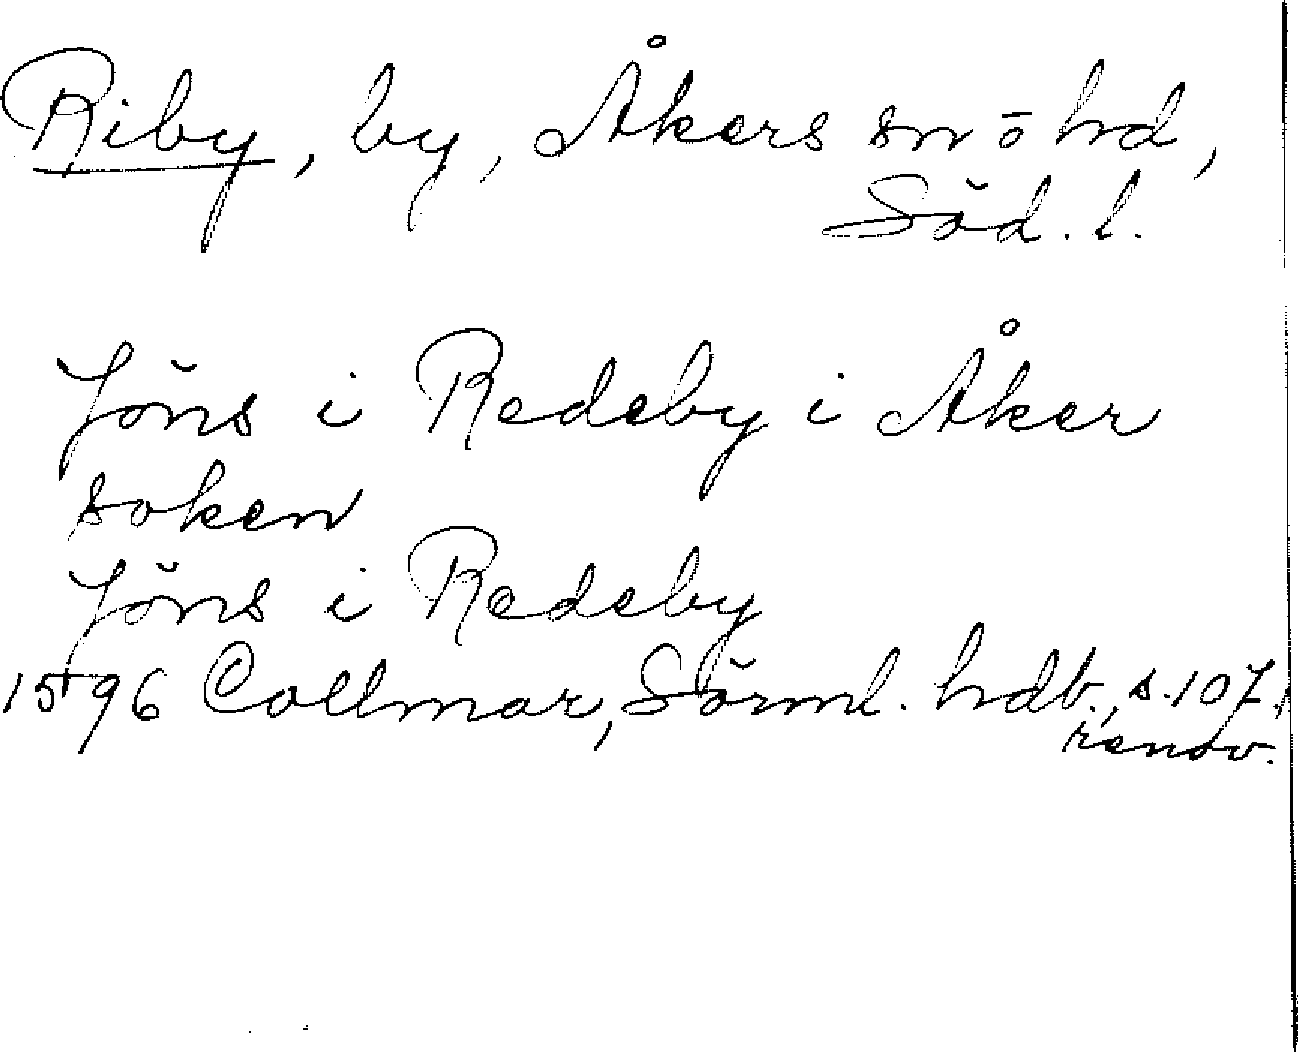 Riby, by, Åkers sn ō hd,
Söd. l.
Jöns i Redeby i Åker
soken
Jöns i Redeby
1596 Collmar, Sörml. hdb., s. 107,
renov.